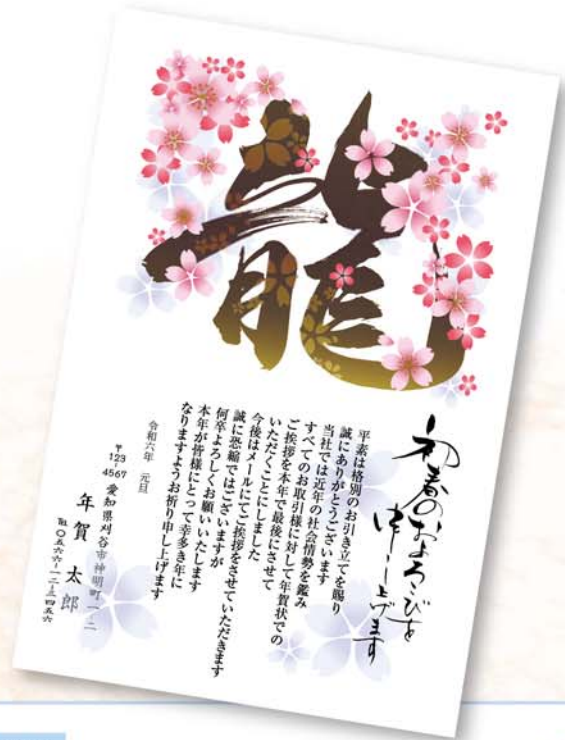 龍
初春のおよろこびを
申し上げます
平素は格別のお引き立てを賜り
誠にありがとうございます
当社では近年の社会情勢を鑑み
すべてのお取引様に対して年賀状での
ご挨拶を本年で最後にさせて
いただくことにしました
今後はメールにてご挨拶をさせていただきます
誠に恐縮ではございますが
何卒よろしくお願いいたします
本年が皆様にとって幸多き年に
なりますようお祈り申し上げます
令和六年 元旦
〒123-4567 愛知県刈谷市神明町一-二
年賀 太郎
℡〇五六六-一二-三四五六